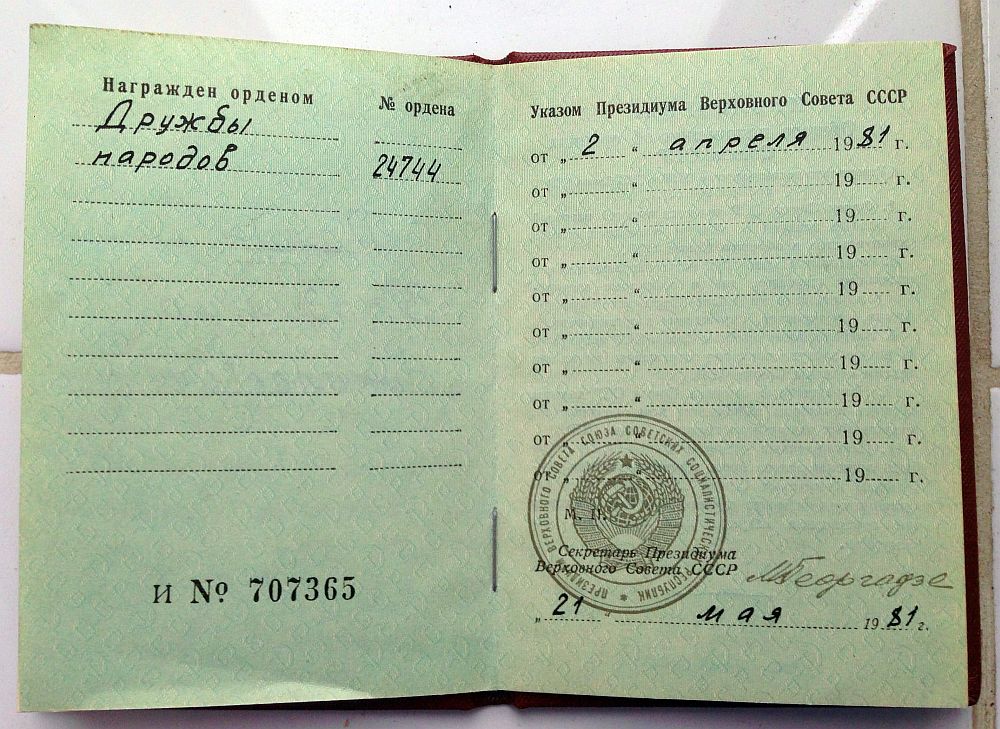 Награжден орденом
№ ордена
Дружбы
народов
24744
И № 707365
Указом Президиума Верховного Совета СССР
от „ 2 “ апреля 1981 г.
от „ “ 19 г.
от „ “ 19 г.
от „ “ 19 г.
от „ “ 19 г.
от „ “ 19 г.
от „ “ 19 г.
от „ “ 19 г.
от „ “ 19 г.
от „ “ 19 г.
ПРЕЗИДИУМ ВЕРХОВНОГО СОВЕТА СОЮЗА СОВЕТСКИХ СОЦИАЛИСТИЧЕСКИХ РЕСПУБЛИК
М. П.
Секретарь Президиума
Верховного Совета СССР
МГеоргадзе
„ 21 “ мая 1981 г.